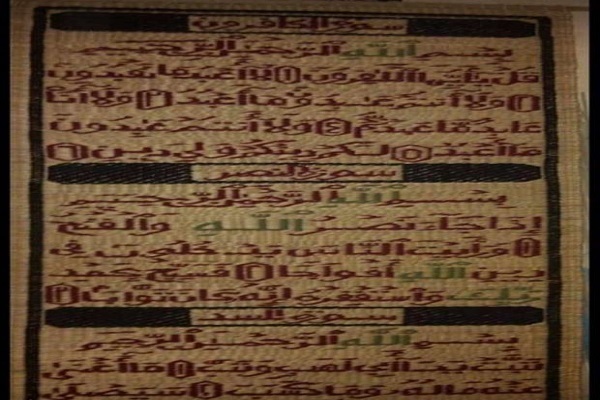 سورة الكافرون
بسم الله الرحمن الرحيم
قل يأيها الكفرون ١ لا أعبد ما تعبدون
٢ ولا أنتم عبدون ما أعبد ٣ ولا أنا
عابد ما عبدتم ٤ ولا أنتم عبدون
ما أعبد ٥ لكم دينكم ولي دين ٦
سورة النصر
بسم الله الرحمن الرحيم
إذا جاء نصر الله والفتح
١ ورأيت الناس يدخلون في
دين الله أفواجا ٢ فسبح بحمد
ربك واستغفره إنه كان توابا ٣
سورة المسد
بسم الله الرحمن الرحيم
تبت يدا أبي لهب وتب ١ ما أغنى
عنه ماله وما كسب ٢ سيصلى